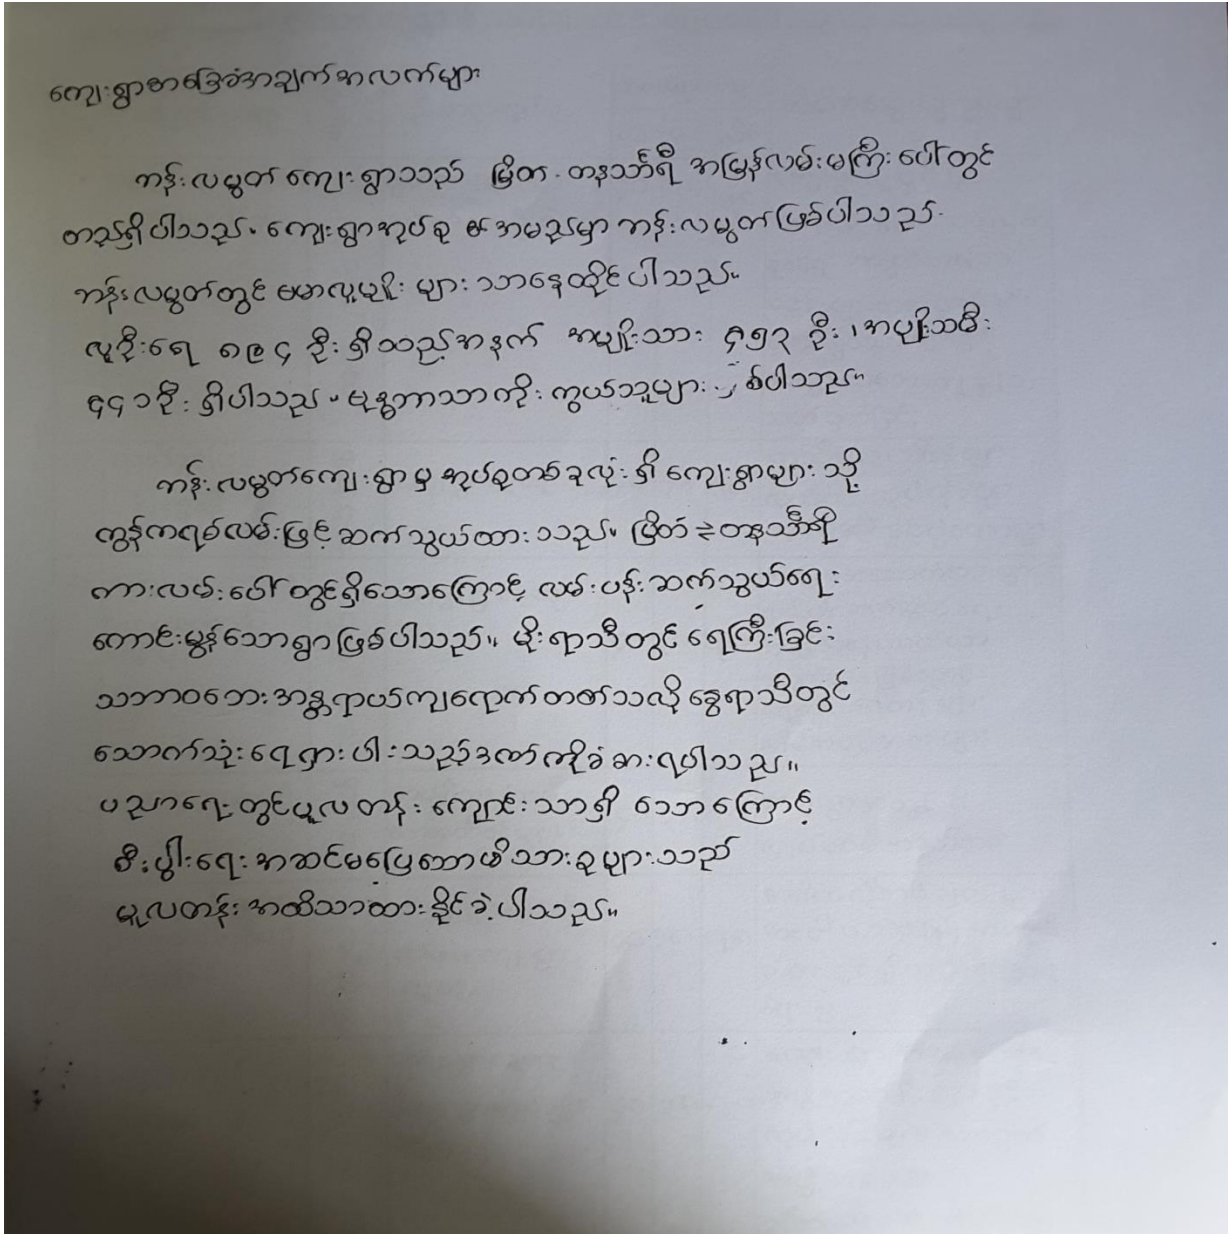 ကျေးရွာအခြေခံအချက်အလက်များ
ကန်းလမွတ်ကျေးရွာသည် မြိတ် - တနင်္သာရီ အမြန်လမ်းမကြီးပေါ်တွင်
တည်ရှိပါသည်။ ကျေးရွာအုပ်စု ၏အမည်မှာ ကန်းလမွတ်ဖြစ်ပါသည်။
ကန်းလမွတ်တွင် ဗမာလူမျိုး များသာနေထိုင်ပါသည်။
လူဦးရေ ၈၉၄ ဦးရှိသည့်အနက် အမျိုးသား ၄၅၃ ဦး ၊ အမျိုးသမီး
၄၄၁ ဦး ရှိပါသည်။ ဗုဒ္ဓဘာသာကိုးကွယ်သူများ ဖြစ်ပါသည်။
ကန်းလမွတ်ကျေးရွာမှ အုပ်စုတစ်ခုလုံးရှိ ကျေးရွာများသို့
ကွန်ကရစ်လမ်းဖြင့်ဆက်သွယ်ထားသည်။ မြိတ်နှင့်တနင်္သာရီ
ကားလမ်းပေါ်တွင်ရှိသောကြောင့် လမ်းပန်းဆက်သွယ်ရေး
ကောင်းမွန်သောရွာဖြစ်ပါသည်။ မိုးရာသီတွင် ရေကြီးခြင်း
သဘာဝဘေးအန္တရာယ်ကျရောက်တတ်သလို နွေရာသီတွင်
သောက်သုံးရေရှားပါးသည့်ဒဏ်ကိုခံစားရပါသည်။
ပညာရေးတွင်မူလတန်းကျောင်းသာရှိ သောကြောင့်
စီးပွါးရေးအဆင်မပြေသောမိသားစုများသည်
မူလတန်းအထိသာထားနိုင်ခဲ့ပါသည်။